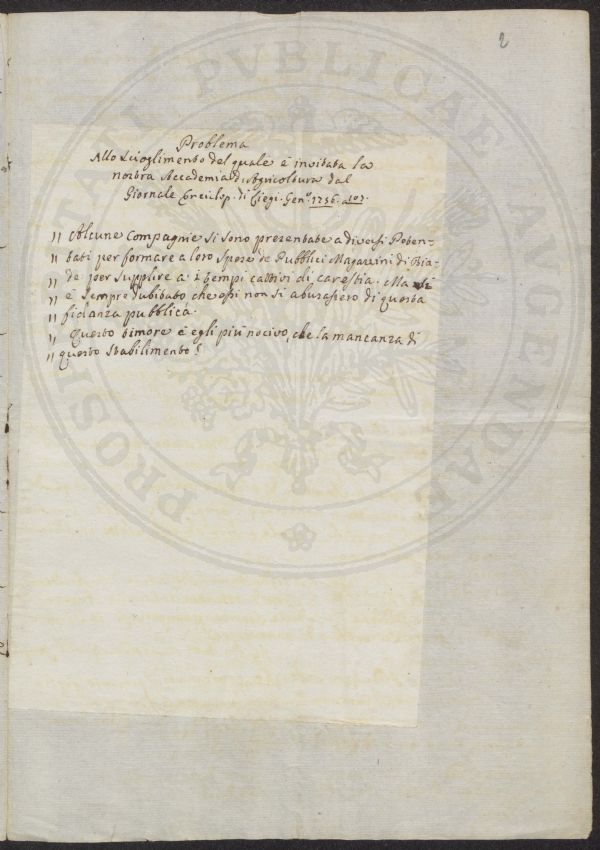 2
Problema
Allo Scioglimento del quale è invitata la
nostra Accademia di Agricoltura dal
Giornale Enciclop. di Liegi. Gen.º 1756. a 107.
" Alcune Compagnie si sono presentate a diversi Poten-
" tati per formare a loro spese de Pubblici Magazzini di Bia-
" de per supplire a i tempi cattivi di carestia. Ma si
" è sempre dubitato che essi non si abusassero di questa
" fidanza pubblica.
" Questo timore è egli più nocivo, che la mancanza di
" questo Stabilimento?
PROSPERITATI PVBLICAE AVGENDAE